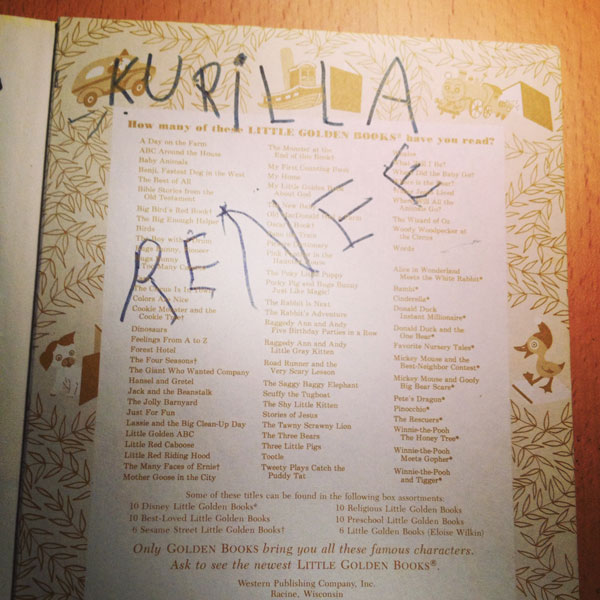 KURILLA
How many of these LITTLE GOLDEN BOOKS® have you read?
RENEE
A Day on the Farm
ABC Around the House
Baby Animals
Benji, Fastest Dog in the West
The Best of All
Bible Stories from the
Old Testament
Big Bird's Red Book†
The Big Enough Helper
Birds
The Boy with
Bugs Bunny, Pioneer
Bugs Bunny
Too Many
The Circus Is In
Colors Are Nice
Cookie Monster and the
Cookie Tree†
Dinosaurs
Feelings From A to Z
Forest Hotel
The Four Seasons†
The Giant Who Wanted Company
Hansel and Gretel
Jack and the Beanstalk
The Jolly Barnyard
Just For Fun
Lassie and the Big Clean-Up Day
Little Golden ABC
Little Red Caboose
Little Red Riding Hood
The Many Faces of Ernie†
Mother Goose in the City
The Monster at the
End of this Book†
My First Counting Book
My Home
My Little Golden Book
About God
The New
Old MacDonald
Oscar's Book†
Dictionary
The Poky Little Puppy
Porky Pig and Bugs Bunny
Just Like Magic!
The Rabbit is Next
The Rabbit's Adventure
Raggedy Ann and Andy
Five Birthday Parties in a Row
Raggedy Ann and Andy
Little Gray Kitten
Road Runner and the
Very Scary Lesson
The Saggy Baggy Elephant
Scuffy the Tugboat
The Shy Little Kitten
Stories of Jesus
The Tawny Scrawny Lion
The Three Bears
Three Little Pigs
Tootle
Tweety Plays Catch the
Puddy Tat
Be?
Did the Baby Go?
All the
Animals Go?
The Wizard of Oz
Woody Woodpecker at
the Circus
Words
Alice in Wonderland
Meets the White Rabbit*
Bambi*
Cinderella*
Donald Duck
Instant Millionaire*
Donald Duck and the
One Bear*
Favorite Nursery Tales*
Mickey Mouse and the
Best-Neighbor Contest*
Mickey Mouse and Goofy
Big Bear Scare*
Pete's Dragon*
Pinocchio*
The Rescuers*
Winnie-the-Pooh
The Honey Tree*
Winnie-the-Pooh
Meets Gopher*
Winnie-the-Pooh
and Tigger*
Some of these titles can be found in the following box assortments:
10 Disney Little Golden Books*
10 Best-Loved Little Golden Books
6 Sesame Street Little Golden Books†
10 Religious Little Golden Books
10 Preschool Little Golden Books
6 Little Golden Books (Eloise Wilkin)
Only GOLDEN BOOKS bring you all these famous characters.
Ask to see the newest LITTLE GOLDEN BOOKS®.
Western Publishing Company, Inc.
Racine, Wisconsin